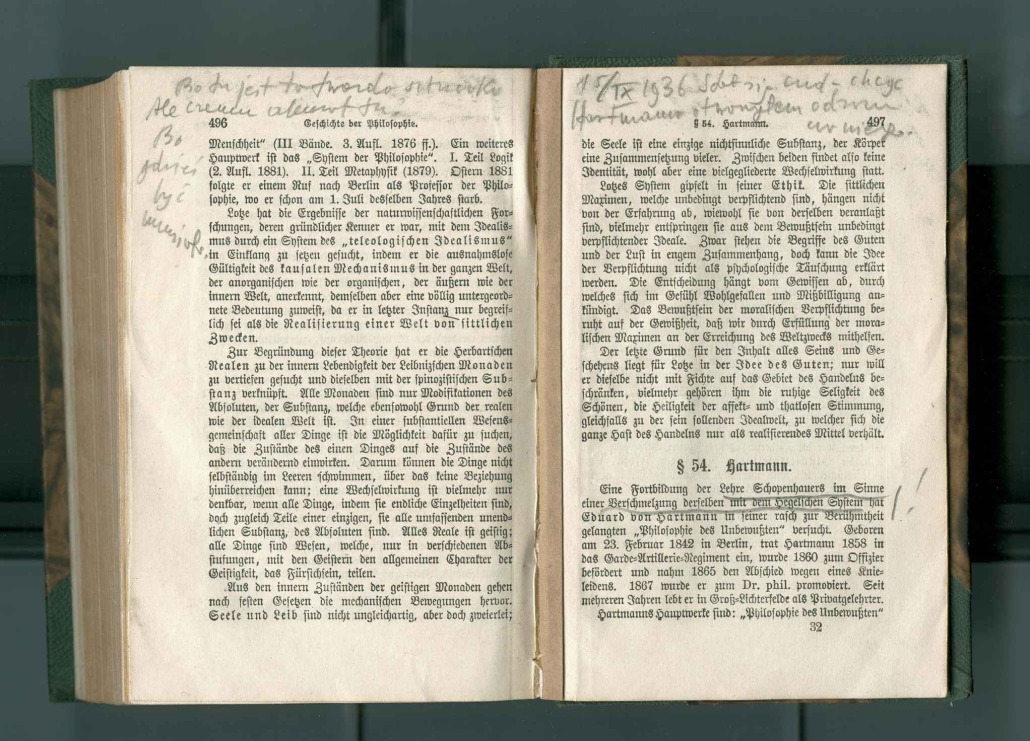 Bo tu jest to twardo
Ale czemu
Bo
gdzieś
być
496 Geschichte der Philosophie.
Menschheit“ (III Bände. 3. Aufl. 1876 ff.). Ein weiteres
Hauptwerk ist das „System der Philosophie“. I. Teil Logik
(2. Aufl. 1881). II. Teil Metaphysik (1879). Ostern 1881
folgte er einem Ruf nach Berlin als Professor der Philo-
sophie, wo er schon am 1. Juli desselben Jahres starb.
Lotze hat die Ergebnisse der naturwissenschaftlichen For-
schungen, deren gründlicher Kenner er war, mit dem Idealis-
mus durch ein System des „teleologischen Idealismus“
in Einklang zu setzen gesucht, indem er die ausnahmslose
Gültigkeit des kausalen Mechanismus in der ganzen Welt,
der anorganischen wie der organischen, der äußern wie der
innern Welt, anerkennt, demselben aber eine völlig untergeord-
nete Bedeutung zuweist, da er in letzter Instanz nur begreif-
lich sei als die Realisierung einer Welt von sittlichen
Zwecken.
Zur Begründung dieser Theorie hat er die Herbartschen
Realen zu der innern Lebendigkeit der Leibnizschen Monaden
zu vertiefen gesucht und dieselben mit der spinozistischen Sub-
stanz verknüpft. Alle Monaden sind nur Modifikationen des
Absoluten, der Substanz, welche ebensowohl Grund der realen
wie der idealen Welt ist. In einer substantiellen Wesens-
gemeinschaft aller Dinge ist die Möglichkeit dafür zu suchen,
daß die Zustände des einen Dinges auf die Zustände des
andern verändernd einwirken. Darum können die Dinge nicht
selbständig im Leeren schwimmen, über das keine Beziehung
hinüberreichen kann; eine Wechselwirkung ist vielmehr nur
denkbar, wenn alle Dinge, indem sie endliche Einzelheiten sind,
doch zugleich Teile einer einzigen, sie alle umfassenden unend-
lichen Substanz, des Absoluten sind. Alles Reale ist geistig;
alle Dinge sind Wesen, welche, nur in verschiedenen Ab-
stufungen, mit den Geistern den allgemeinen Charakter der
Geistigkeit, das Fürsichsein, teilen.
Aus den innern Zuständen der geistigen Monaden gehen
nach festen Gesetzen die mechanischen Bewegungen hervor.
Seele und Leib sind nicht ungleichartig, aber doch zweierlei;
15/IX 1936 chcąc
Hartmanna otworzyłem
§ 54. Hartmann. 497
die Seele ist eine einzige nichtsinnliche Substanz, der Körper
eine Zusammensetzung vieler. Zwischen beiden findet also keine
Identität, wohl aber eine vielgegliederte Wechselwirkung statt.
Lotzes System gipfelt in seiner Ethik. Die sittlichen
Maximen, welche unbedingt verpflichtend sind, hängen nicht
von der Erfahrung ab, wiewohl sie von derselben veranlaßt
sind, vielmehr entspringen sie aus dem Bewußtsein unbedingt
verpflichtender Ideale. Zwar stehen die Begriffe des Guten
und der Lust in engem Zusammenhang, doch kann die Idee
der Verpflichtung nicht als psychologische Täuschung erklärt
werden. Die Entscheidung hängt vom Gewissen ab, durch
welches sich im Gefühl Wohlgefallen und Mißbilligung an-
kündigt. Das Bewußtsein der moralischen Verpflichtung be-
ruht auf der Gewißheit, daß wir durch Erfüllung der mora-
lischen Maximen an der Erreichung des Weltzwecks mithelfen.
Der letzte Grund für den Inhalt alles Seins und Ge-
schehens liegt für Lotze in der Idee des Guten; nur will
er dieselbe nicht mit Fichte auf das Gebiet des Handelns be-
schränken, vielmehr gehören ihm die ruhige Seligkeit des
Schönen, die Heiligkeit der affekt- und thatlosen Stimmung,
gleichfalls zu der sein sollenden Idealwelt, zu welcher sich die
ganze Hast des Handelns nur als realisierendes Mittel verhält.
§ 54. Hartmann.
Eine Fortbildung der Lehre Schopenhauers im Sinne
einer Verschmelzung derselben mit dem Hegelschen System hat
Eduard von Hartmann in seiner rasch zur Berühmtheit
gelangten „Philosophie des Unbewußten“ versucht. Geboren
am 23. Februar 1842 in Berlin, trat Hartmann 1858 in
das Garde-Artillerie-Regiment ein, wurde 1860 zum Offizier
befördert und nahm 1865 den Abschied wegen eines Knie-
leidens. 1867 wurde er zum Dr. phil. promoviert. Seit
mehreren Jahren lebt er in Groß-Lichterfelde als Privatgelehrter.
Hartmanns Hauptwerke sind: „Philosophie des Unbewußten“
32
!!